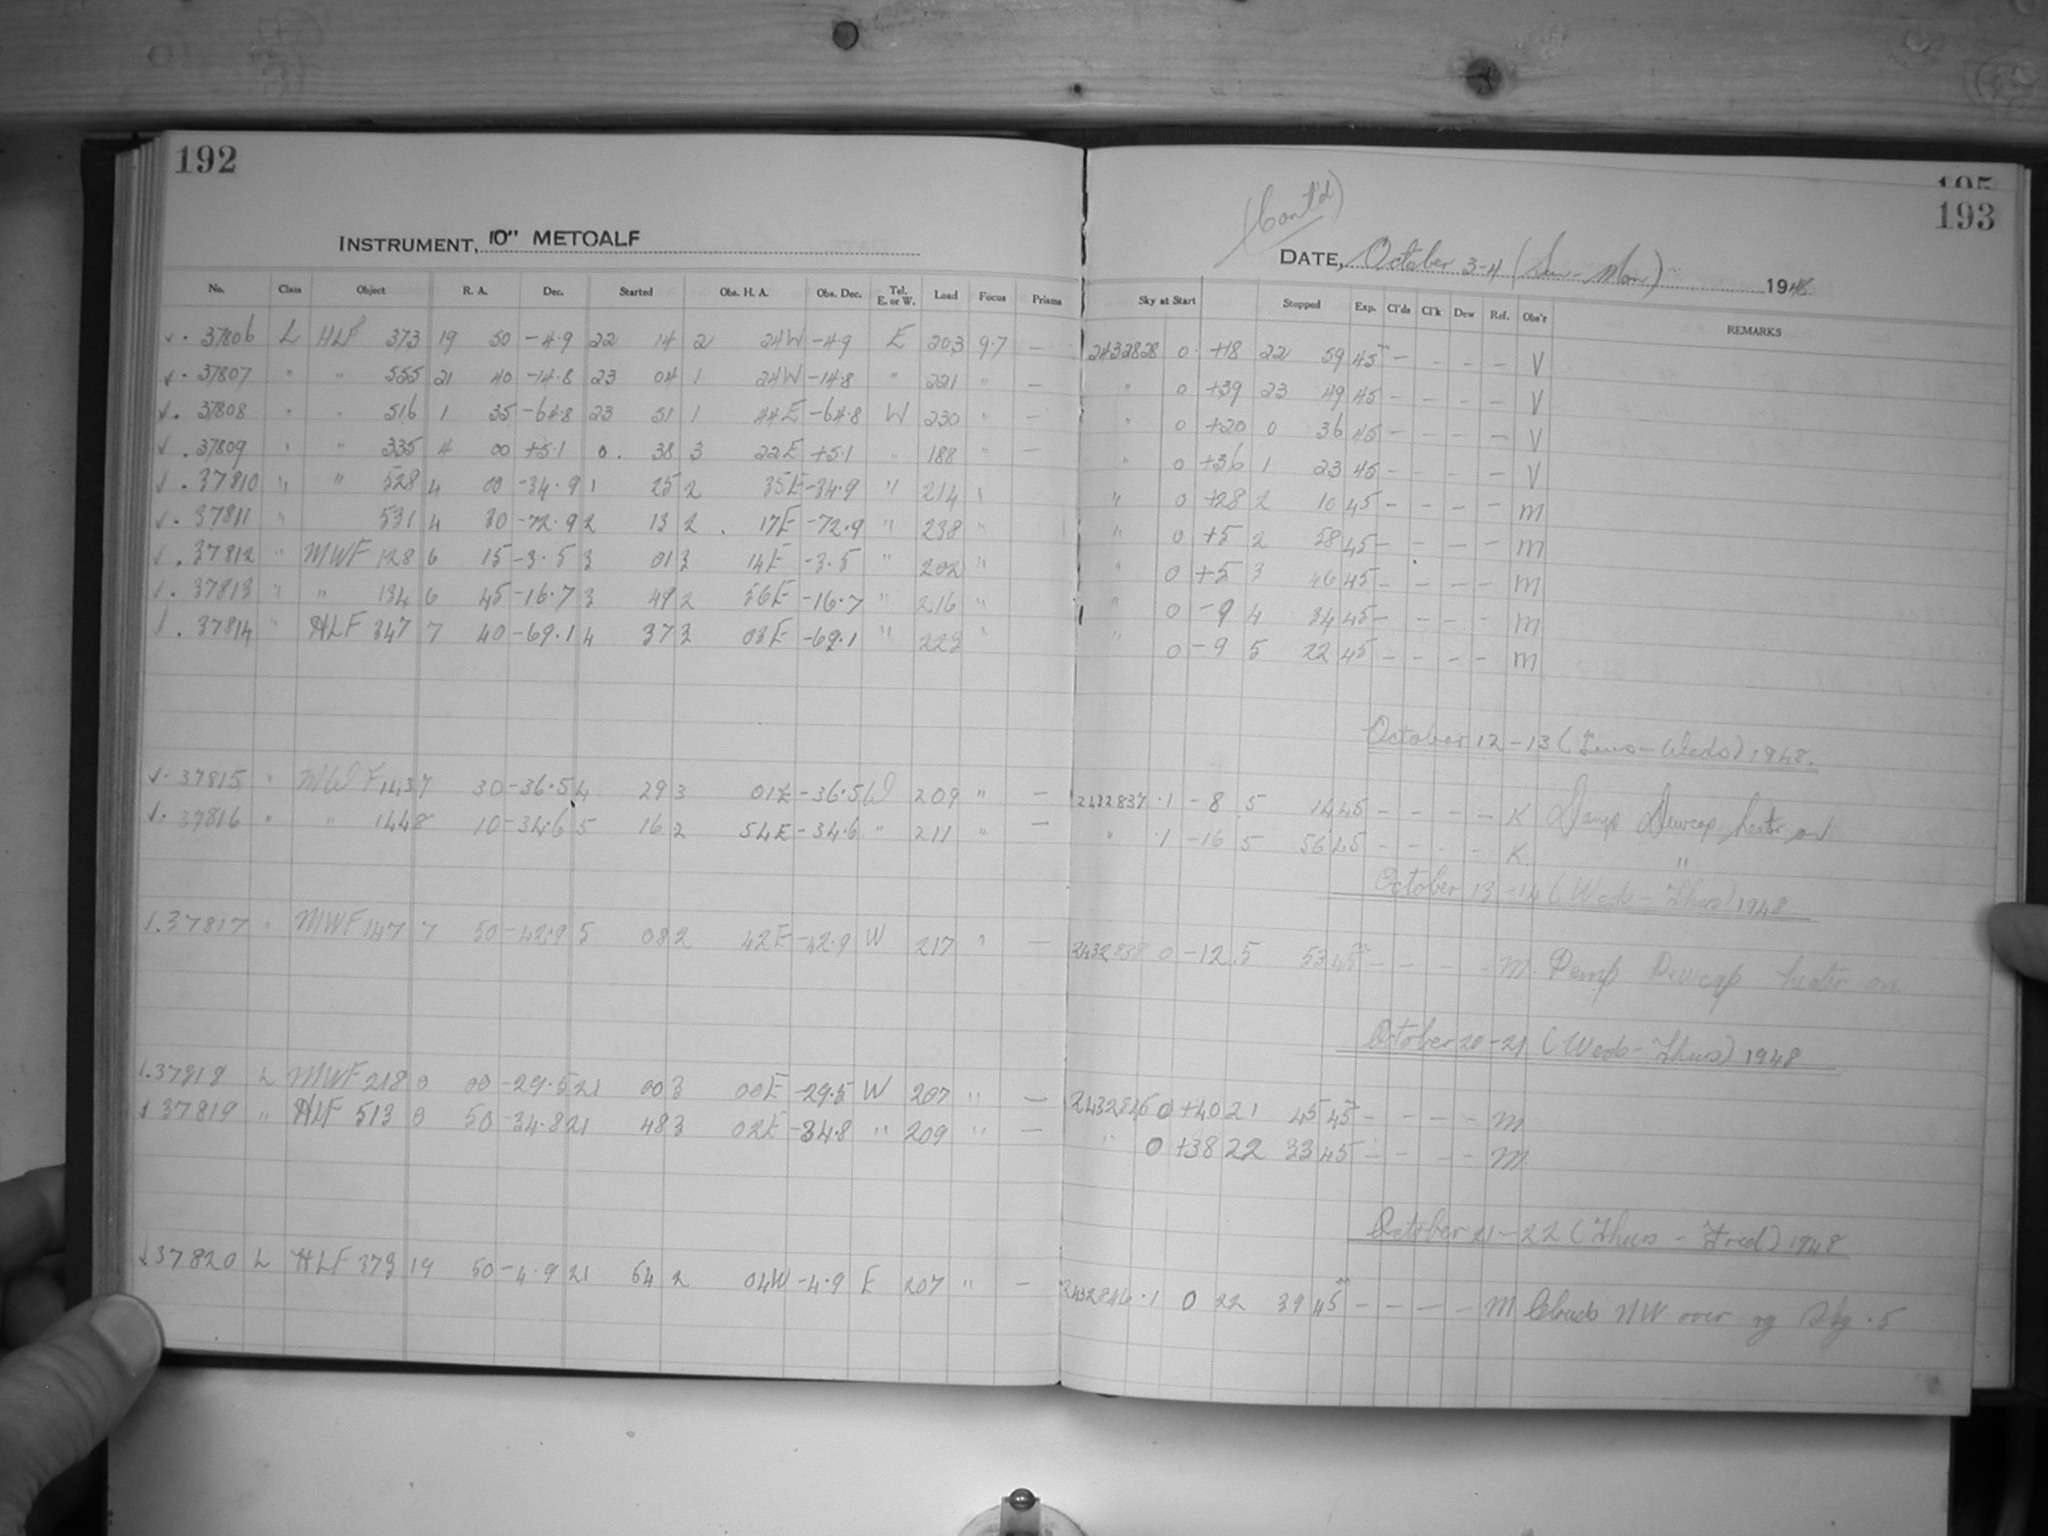 192
INSTRUMENT, 10" METCALF
No. Class Object R. A. Dec. Started Obs. H. A. Obs. Dec. Tel. E. or W. Load Focus Prisms
✓ . 37806 L HLF 373 19 50 -4.9 22 14 2 24W -4.9 E 203 9.7 —
✓ . 37807 " " 555 21 40 -14.8 23 04 1 24W -14.8 " 221 " —
✓ . 37808 " " 516 1 35 -64.8 23 51 1 44E -64.8 W 230 " —
✓ . 37809 " " 335 4 00 +5.1 0 . 38 3 22E +5.1 " 188 " —
✓ . 37810 " " 528 4 00 -34.9 1 25 2 35E -34.9 " 214 "
✓ . 37811 " 531 4 30 -72.9 2 13 2 . 17E -72.9 " 238 "
✓ . 37812 " MWF 128 6 15 -3.5 3 01 3 14E -3.5 " 202 "
✓ . 37813 " " 134 6 45 -16.7 3 49 2 56E -16.7 " 216 "
✓ . 37814 " HLF 347 7 40 -69.1 4 37 3 03E -69.1 " 223 "
✓ . 37815 " MWF 143 7 30 -36.5 4 29 3 01E -36.5 W 209 " —
✓ . 37816 " " 144 8 10 -34.6 5 16 2 54E -34.6 " 211 " —
✓ . 37817 " MWF 147 7 50 -42.9 5 08 2 42E -42.9 W 217 " —
✓ . 37818 L MWF 218 0 00 -29.5 21 00 3 00E -29.5 W 207 " —
✓ 37819 " HLF 513 0 50 -34.8 21 48 3 02E -34.8 " 209 " —
✓ 37820 L HLF 373 19 50 -4.9 21 54 2 04W -4.9 E 207 " —
195
193
(Cont'd)
DATE, October 3-4 (Sun-Mon) 1948
Sky at Start Stopped Exp. Cl'ds Cl'k Dew Ref. Obs'r REMARKS
2432828 0 +18 22 59 45m — — — — V
" 0 +39 23 49 45 — — — — V
" 0 +20 0 36 45 — — — — V
" 0 +36 1 23 45 — — — — V
" 0 +28 2 10 45 — — — — M
" 0 +5 2 58 45 — — — — M
" 0 +5 3 46 45 — — — — M
" 0 -9 4 34 45 — — — — M
" 0 -9 5 22 45 — — — — M
October 12-13 (Tues-Weds) 1948.
2432837 .1 -8 5 14 45 — — — — K Damp Dewcap heater on
" .1 -16 5 56 45 — — — — K. "
October 13-14 (Weds-Thurs) 1948
2432838 0 -12 5 53 45m — — — — M. Damp Dewcap heater on
October 20-21 (Weds-Thurs) 1948
2432845 0 +40 21 45 45m — — — — M
" 0 +38 22 33 45 — — — — M
October 21-22 (Thurs - Fred) 1948
2432846 .1 0 22 39 45m — — — — M Clouds NW over Sky .5